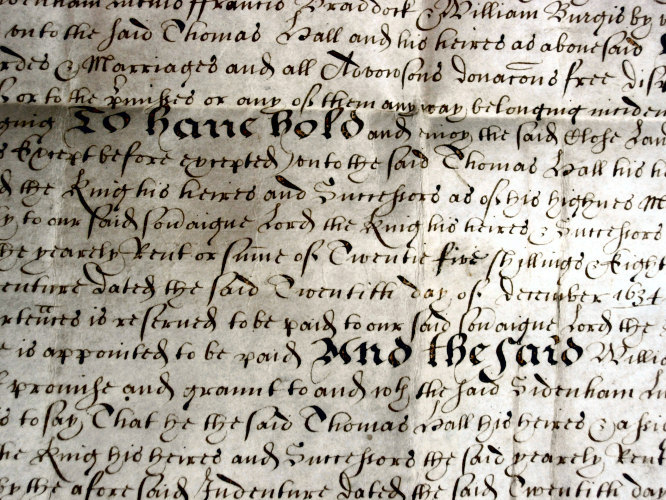 ffrancis Braddock & William Burgis by
vnto the said Thomas Hall and his heires as abovesaid
& Marriages and all Advowsons donacons free
or to the p'misses or any of them any way belonging inciden
To haue hold and enioy the said Close Lan
s Except before excepted) vnto the said Thomas Hall his he
d the King his heires and Successors as of his highnes M
y to our said sou'aigne Lord the King his heires & Successors
he yearely Rent or sum'e of Twentie fiue shillings & Eight
enture dated the said Twentith day of December 1634
rten'ces is reserued to be paid to our said sou'aigne Lord the
e is appointed to be paid And the said Willi
promise and graunt to and wth the said Sidenham
s to say That he the said Thomas Hall his heires &
he King his heires and Successors the said yearely Rent
by the aforesaid Indenture dated the said Twentith da